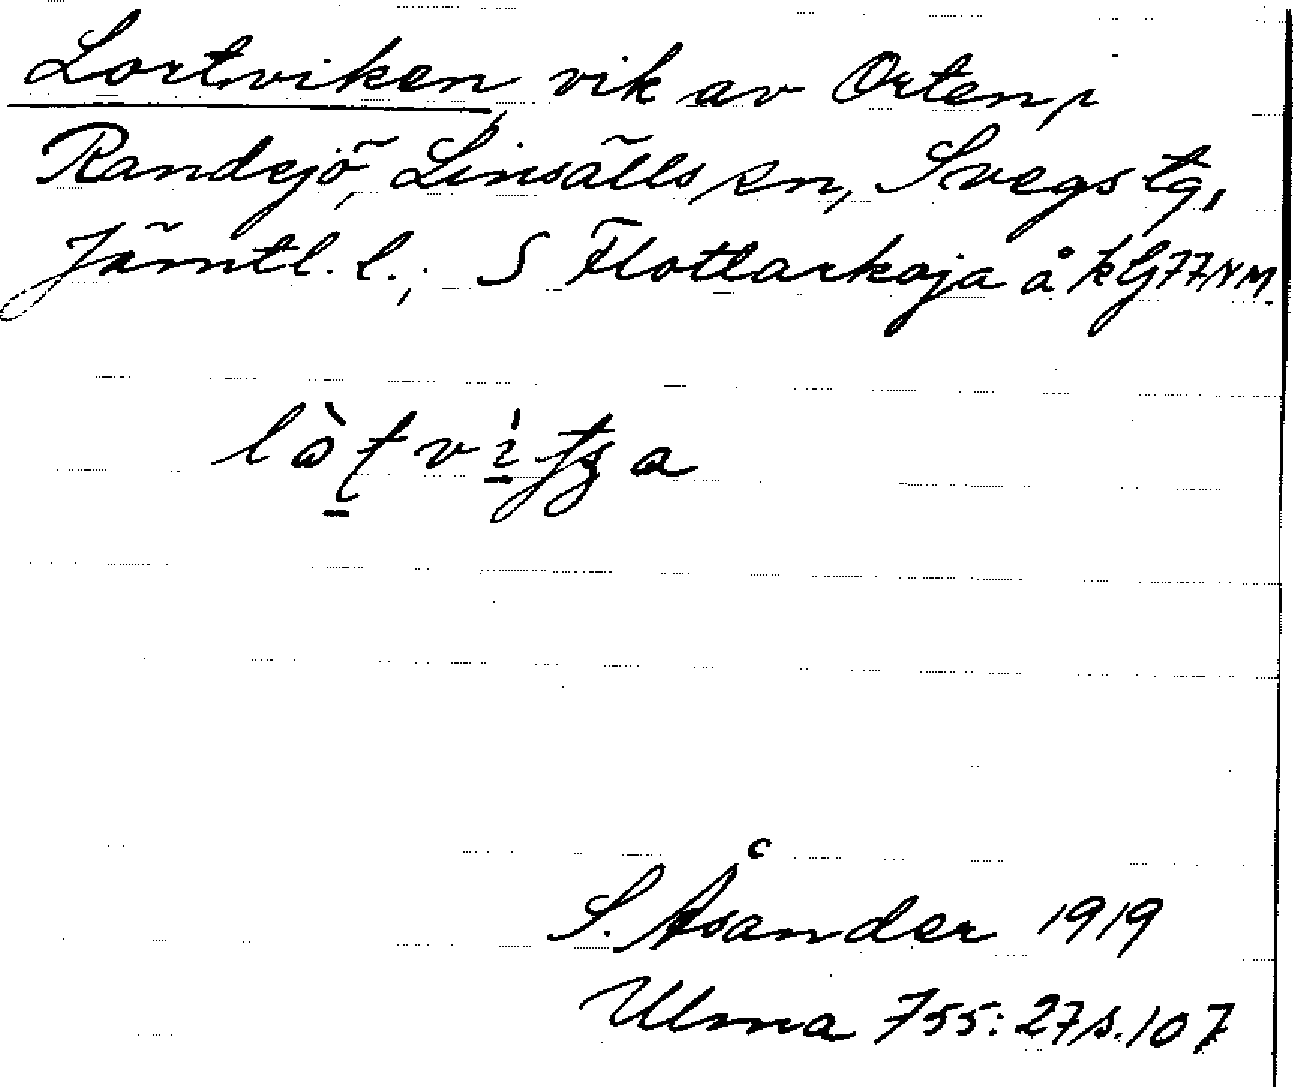 Lortviken, vik av Orten,
Randsjö, Linsälls sn, Svegs tg,
Jämtl. l.; S Flottarkoja å kG77,
S. Åsander 1919
Ulma 755:27 s. 107